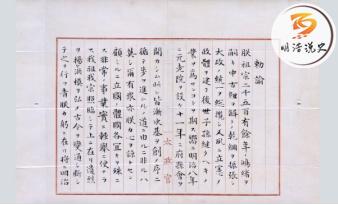 勅諭
朕祖宗二千五百有餘年ノ鴻緒ヲ
嗣キ中古紐ヲ解クノ乾綱ヲ振張シ
大政ノ統一ヲ総攬シ又夙ニ立憲ノ
政體ヲ建テ後世子孫継クヘキノ
業ヲ為サンコトヲ期ス嚮ニ明治八年
ニ元老院ヲ設ケ十一年ニ府縣會ヲ
開カシム此レ皆漸次基ヲ創メ序ニ
循テ歩ヲ進ムルノ道ニ由ルニ非サルハ
莫シ爾有衆亦朕カ心ヲ諒トセン
顧ミルニ立國ノ體國各宜キヲ殊ニ
ス非常ノ事業實ニ輕擧ニ便ナラ
ス我祖我宗照臨シテ上ニ在リ遺烈
ヲ揚ケ洪模ヲ弘メ古今ヲ變通シ斷
シテ之ヲ行フ責朕カ躬ニ在リ将ニ明治
太政官
明治說史